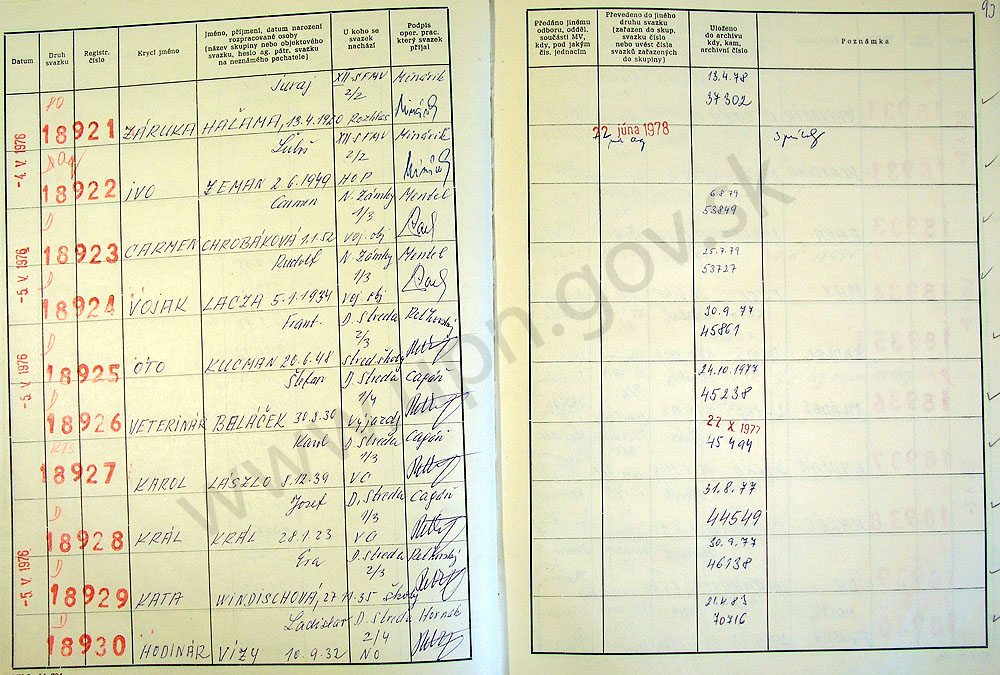 93
Datum
Druh svazku
Registr. číslo
Krycí jméno
Jméno, příjmení, datum narození
rozpracované osoby
(název skupiny nebo objektového
svazku, heslo ag. pátr. svazku
na neznámého pachatele)
U koho se
svazek
nachází
Podpis
oper. prac.
který svazek
přijal
Předáno jinému
odboru, odděl.
součásti MV,
kdy, pod jakým
čís. jednacím
Převedeno do jiného
druhu svazku
(zařazen do skup.
svazku číslo
nebo uvést čísla
svazků zařazených
do skupiny)
Uloženo
do archivu
kdy, kam,
archivní číslo
Poznámka
Juraj XII. SFMV Minárik 13.4.78
PO 2/2 37302
18921 ZÁRUKA HALAMA, 13.4.1920 Rozhlas
-4. V. 1976 Ľuboš XII SFMV Minárik 22. júna 1978
2/2
18922 IVO ZEMAN 2.6.1949 HOP
Carmen N. Zámky Mentel 6.8.79
D 1/3 53849
18923 CARMEN CHROBÁKOVÁ 1.1.52 Voj. obj
-5. V. 1976 Rudolf N. Zámky Mentel 25.7.79
D 1/3 53727
18924 VOJAK LACZA 5.1.1934 Voj. obj
Frant. D. Streda 30.9.77
D 2/3 45861
18925 OTO KUCMAN 20.6.48 Stred. školy
-5. V. 1976 Štefan D. Streda Cagáň 24.10.1977
D 1/4 45238
18926 VETERINÁR BALÁČEK 30.8.30 Výjazdy
Karol D. Streda Cagáň 27 X 1977
1/3 45494
18927 KAROL LASZLO 8.12.39 VO
Jozef D. Streda Cagáň 31.8.77
D 1/3 44549
18928 KRÁL KRÁL 28.1.23 VO
-5. V. 1976 D. Streda 30.9.77
D 2/3 46138
18929 KATA WINDISCHOVÁ, 27.11.35 Školy
Ladislav D. Streda Hornák 21.4.83
D 2/4 70716
18930 HODINÁR VÍZY 10.9.32 NO
www.upn.gov.sk